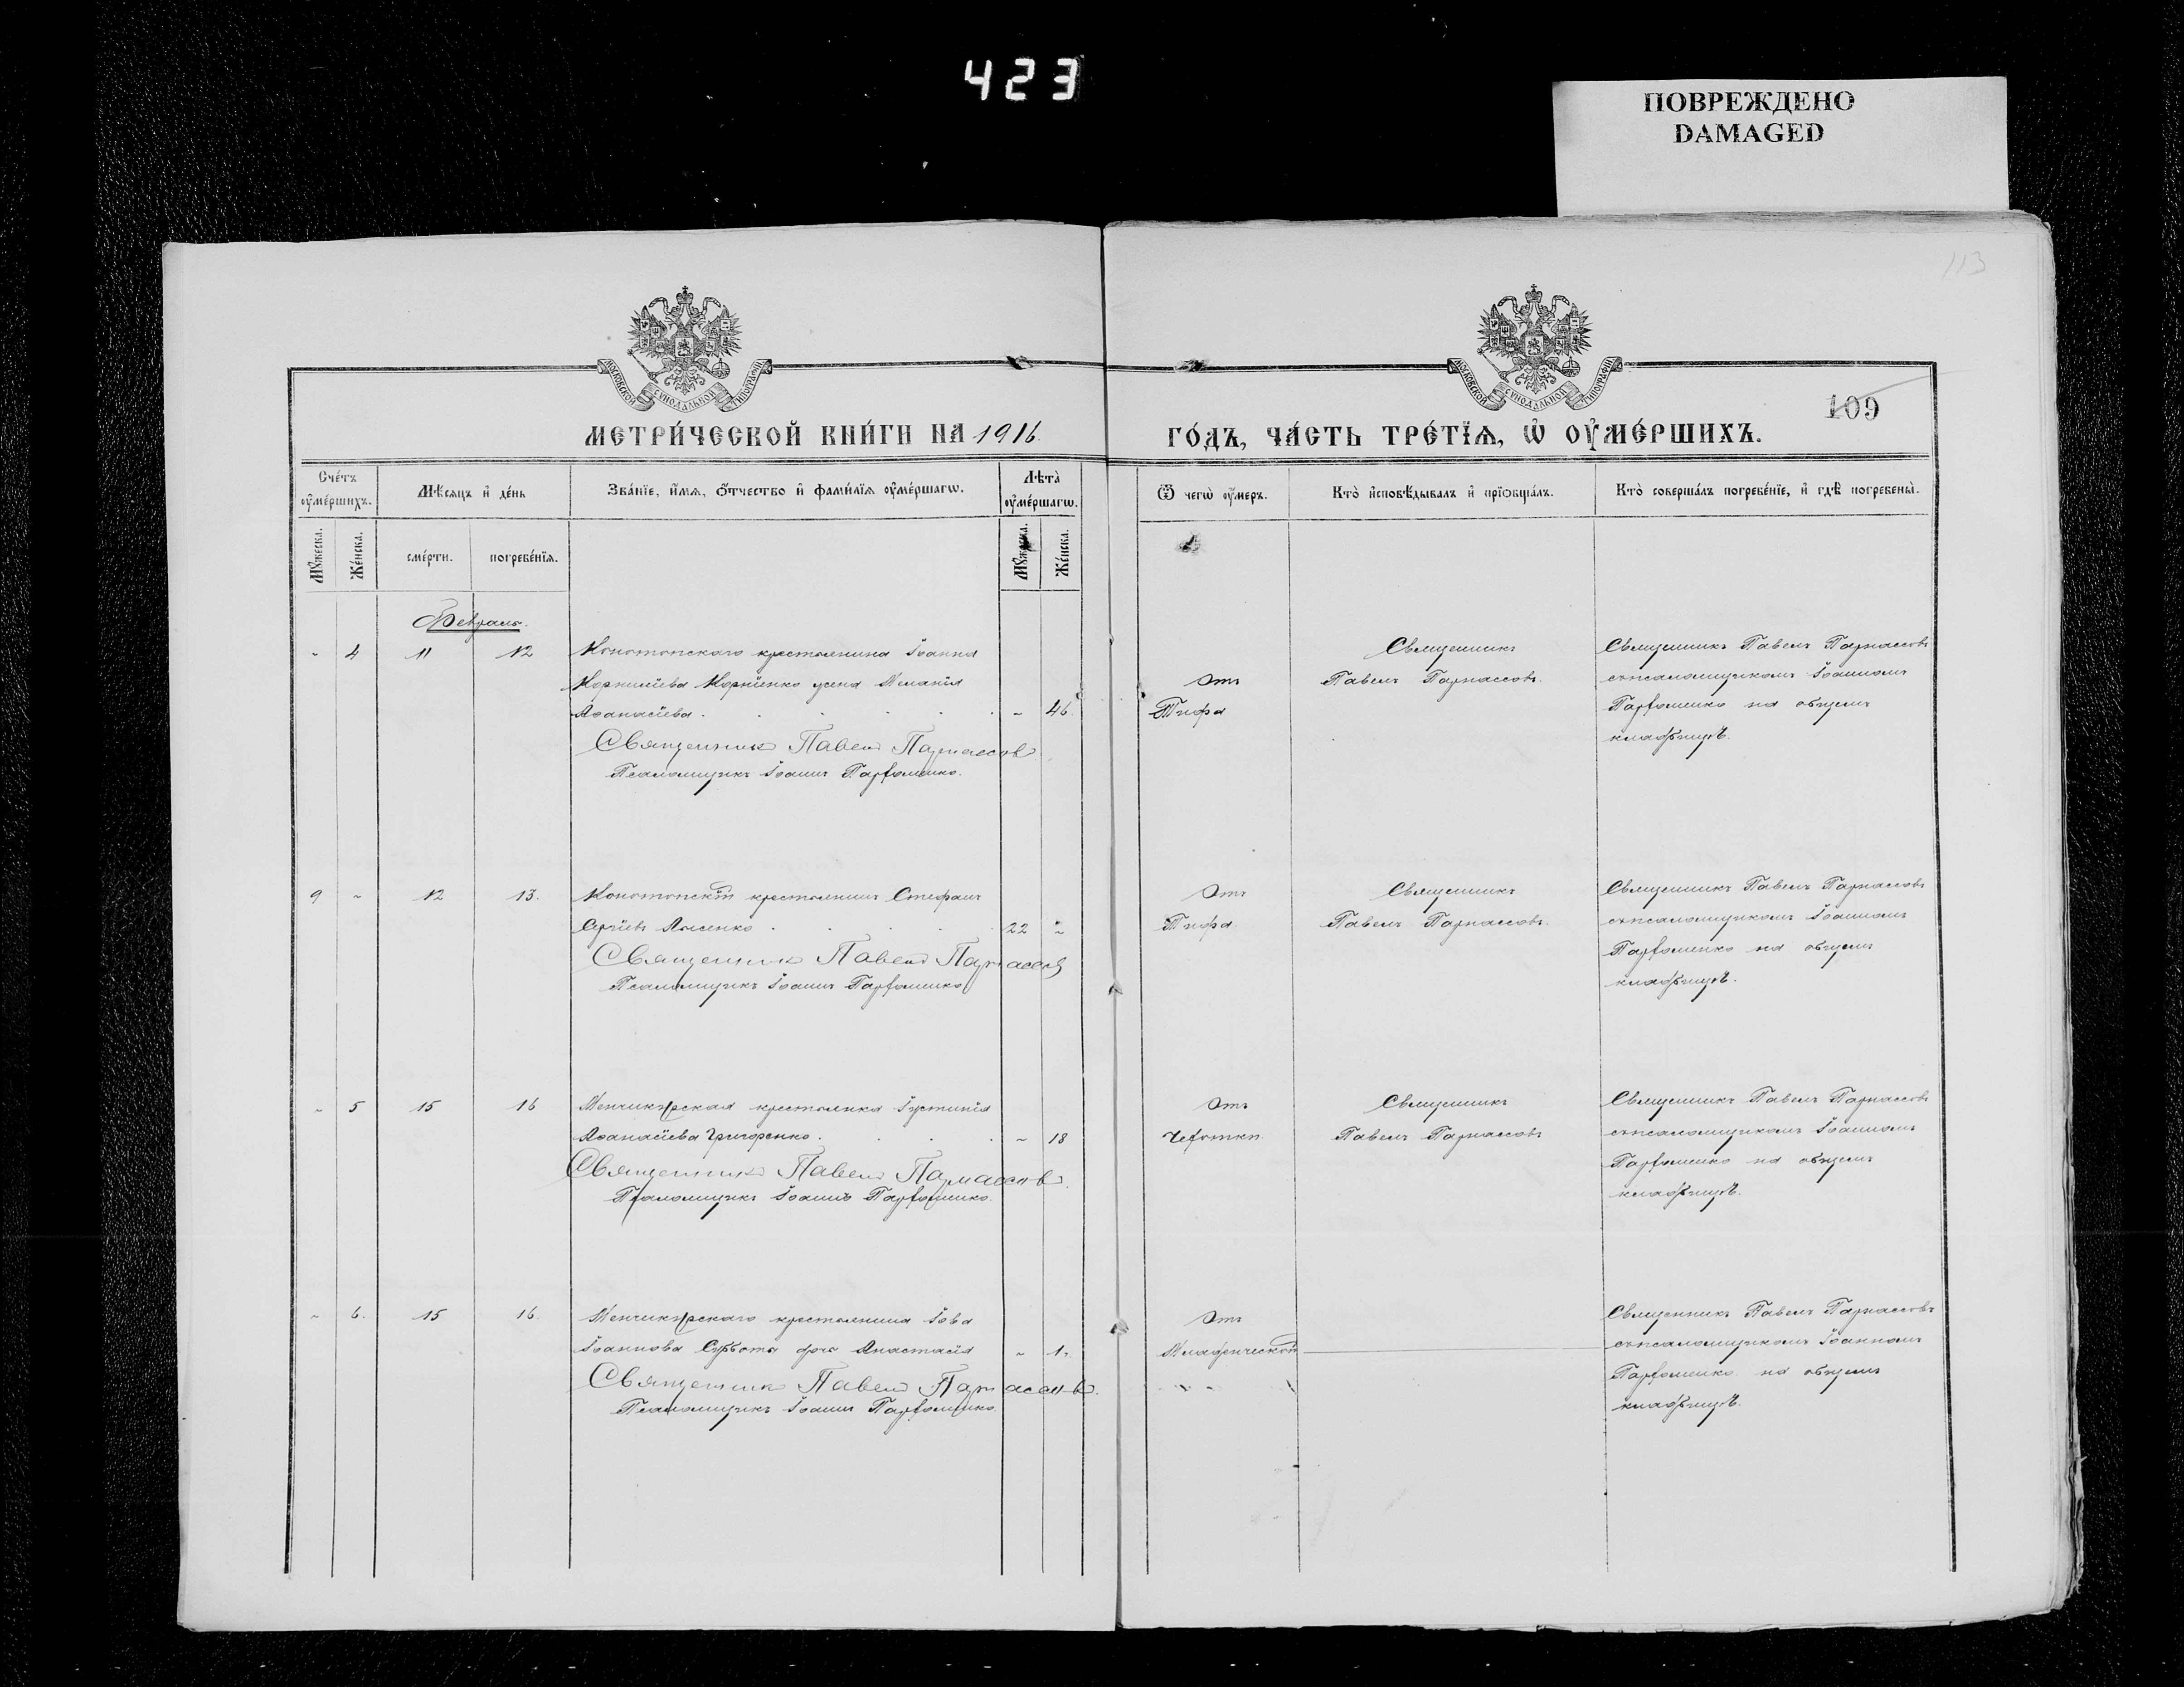 423
ПОВРЕЖДЕНО
DAMAGED
113
МОСКОВСКОЙ СУНОДАЛЬНОЙ ТИПОГРАФІИ
МОСКОВСКОЙ СУНОДАЛЬНОЙ ТИПОГРАФІИ
109
МЕТРИ́ЧЕСКОЙ КНИ́ГИ НА 1916.
ГО́ДЪ, ЧА́СТЬ ТРЕ́ТЇѦ, Ѡ҆ ОУ҆МЕ́РШИХЪ.
Сче́тъ оу҆ме́ршихъ.
Мѣ́сѧцъ и҆ де́нь
Зва́нїе, и҆́мѧ, ѻ҆́тчество и҆ фами́лїѧ оу҆ме́ршагѡ.
Лѣта̀ оу҆ме́ршагѡ.
Ѿ чегѡ̀ оу҆́меръ.
Кто̀ и҆сповѣ́дывалъ и҆ прїѡбща́лъ.
Кто̀ соверша́лъ погребе́нїе, и҆ гдѣ̀ погребены̀.
Мꙋ́жеска.
Же́нска.
сме́рти.
погребе́нїѧ.
Мꙋ́жеска.
Же́нска.
Февраль.
- 4 11 12 Конотопскаго крестьянина Іоанна
Корнилїева Корнїенко жена Меланїя
Аѳанасїева . - 46.
Священникъ Павелъ Парнассовъ
Псаломщикъ Іоаннъ Парфоменко.
Отъ
Тифа
Священникъ
Павелъ Парнассовъ.
Священникъ Павелъ Парнассовъ
съ псаломщикомъ Іоанномъ
Парфоменко на общемъ
кладбищѣ.
9 - 12 13. Конотопскїй крестьянинъ Стефанъ
Сергїевъ Лысенко . 22 -
Священникъ Павелъ Парнассовъ
Псаломщикъ Іоаннъ Парфоменко
Отъ
Тифа
Священникъ
Павелъ Парнассовъ.
Священникъ Павелъ Парнассовъ
съ псаломщикомъ Іоанномъ
Парфоменко на общемъ
кладбищѣ.
- 5 15 16 Менчикурская крестьянка Іустинїя
Аѳанасїева Григоренко . - 18
Священникъ Павелъ Парнассовъ.
Псаломщикъ Іоаннъ Парфоменко.
Отъ
Чахотки
Священникъ
Павелъ Парнассовъ
Священникъ Павелъ Парнассовъ
съ псаломщикомъ Іоанномъ
Парфоменко на общемъ
кладбищѣ.
- 6. 15 16. Менчикурскаго крестьянина Іова
Іоаннова Субота дочь Анастасїя - 1.
Священникъ Павелъ Парнассовъ.
Псаломщикъ Іоаннъ Парфоменко.
Отъ
Младенческой
Священникъ Павелъ Парнассовъ
съ псаломщикомъ Іоанномъ
Парфоменко на общемъ
кладбищѣ.